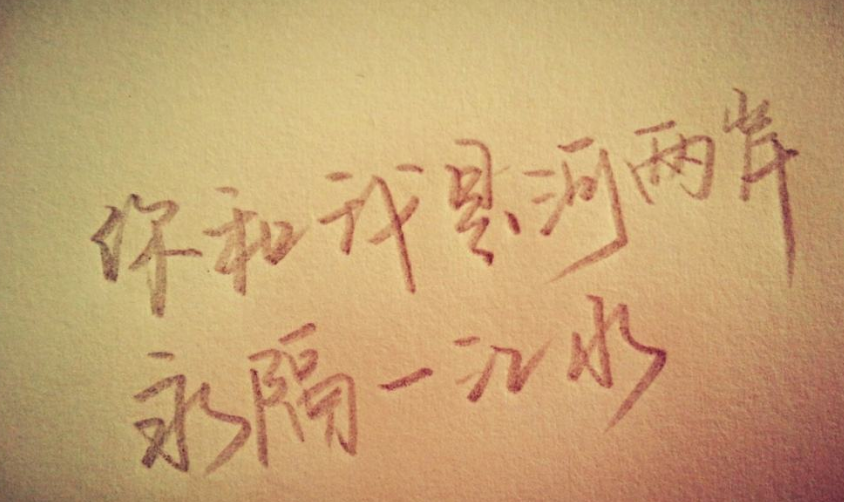 你和我是河两岸
永隔一江水